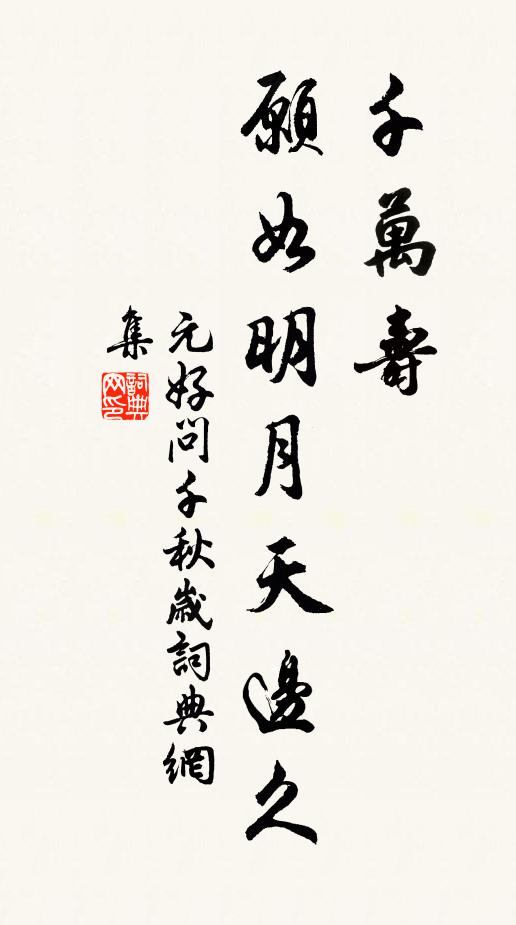 千萬壽
願如明月天邊久
元好問千秋歲詞典網
集
詞典
网印